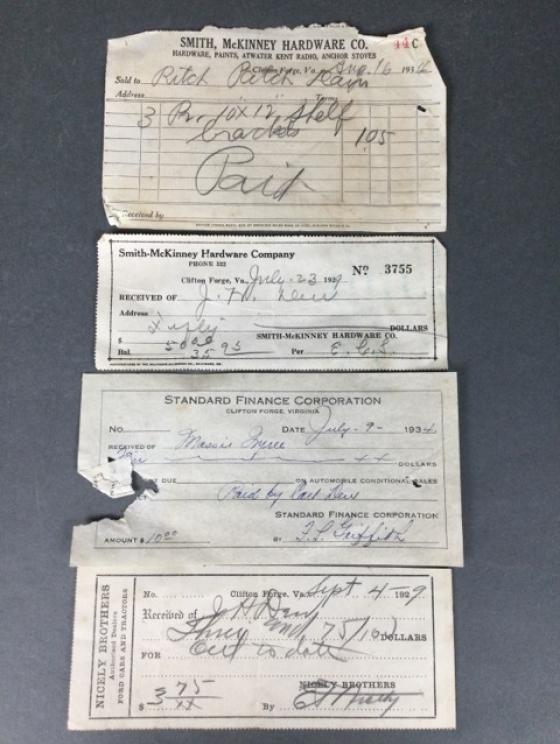 SMITH, McKINNEY HARDWARE CO. 44 C
HARDWARE, PAINTS, ATWATER KENT RADIO, ANCHOR STOVES
Clifton Forge, Va., Aug 16 193
Sold to Ritch Ritch
Address Terms
3 Pr. 10x12 Shelf
brackets 105
Paid
Received by
Smith-McKinney Hardware Company
PHONE
Nº 3755
Clifton Forge, Va., July-23 1929
RECEIVED OF J. Dew
Address
Fifty DOLLARS
$ 50 00 SMITH-McKINNEY HARDWARE CO.
Bal. 35 95 Per E.C.S.
STANDARD FINANCE CORPORATION
CLIFTON FORGE, VIRGINIA
No. DATE July-9- 1934
RECEIVED OF Massie
Ten xx DOLLARS
DUE ON AUTOMOBILE CONDITIONAL SALES
Paid by Carl Dew
STANDARD FINANCE CORPORATION
AMOUNT $10 00 BY Griffith
NICELY BROTHERS
Authorized Dealers
FORD CARS AND TRACTORS
No. Clifton Forge, Va. Sept 4- 1929
Received of J H Dew
Three and 75/100 DOLLARS
FOR to date
NICELY BROTHERS
$ 3 75/xx By Nicely